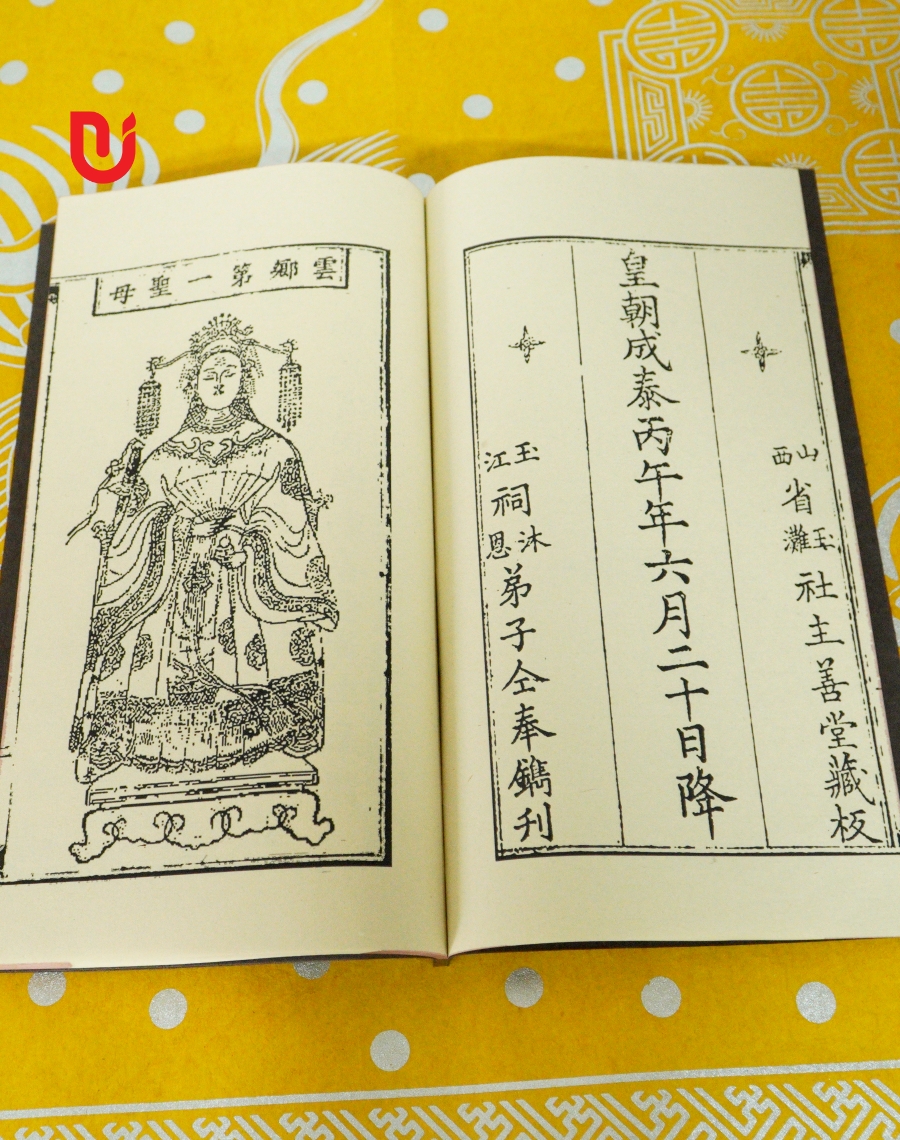 山西省玉灘社主善堂藏板
皇朝成泰丙午年六月二十日降
玉江祠沐恩弟子仝奉鐫刊
雲鄉第一聖母